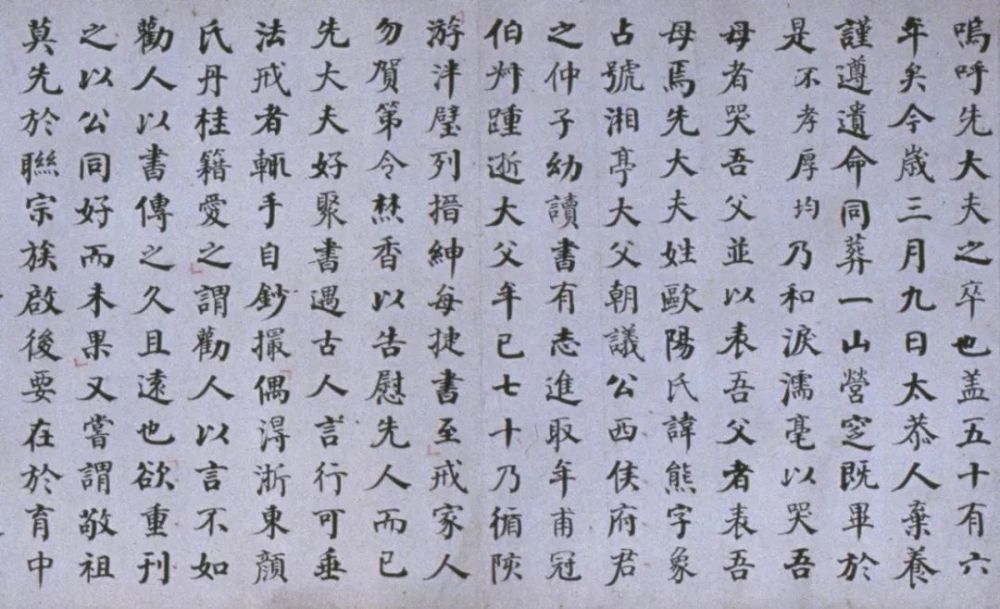 嗚呼先大夫之卒也盖五十有六
年矣今歳三月九日太恭人棄養
謹遵遺命同葬一山營窆既畢於
是不孝厚均乃和淚濡毫以哭吾
母者哭吾父並以表吾父者表吾
母焉先大夫姓歐陽氏諱熊字象
占號湘亭大父朝議公西侯府君
之仲子幼讀書有志進取年甫冠
伯艸踵逝大父年已七十乃循陔
游泮璧列搢紳每捷書至戒家人
勿賀第令焚香以告慰先人而已
先大夫好聚書遇古人言行可垂
法戒者輒手自鈔撮偶淂浙東顏
氏丹桂籍愛之謂勸人以言不如
勸人以書傳之久且遠也欲重刊
之以公同好而未果又嘗謂敬祖
莫先於聯宗族啟後要在於育中